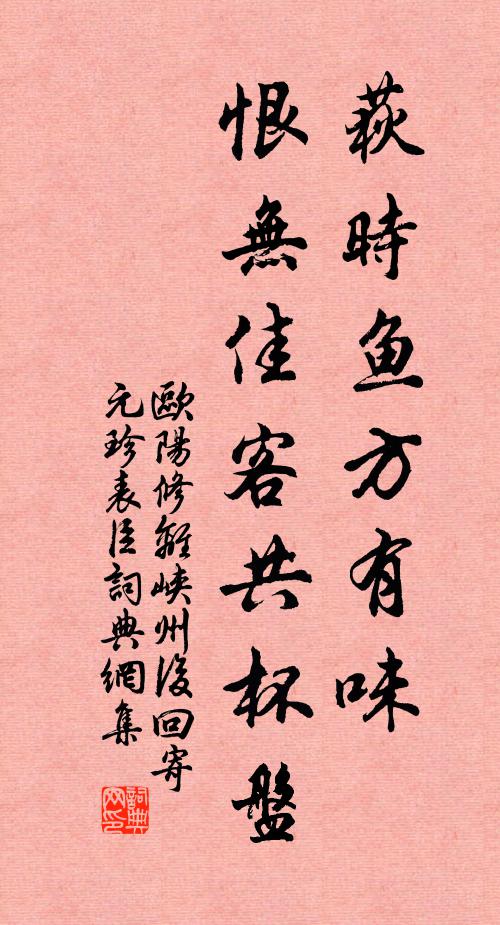 荻時鱼方有味
恨無佳客共杯盤
歐陽修離峽州後回寄
元珍表臣詞典網集
詞典网印